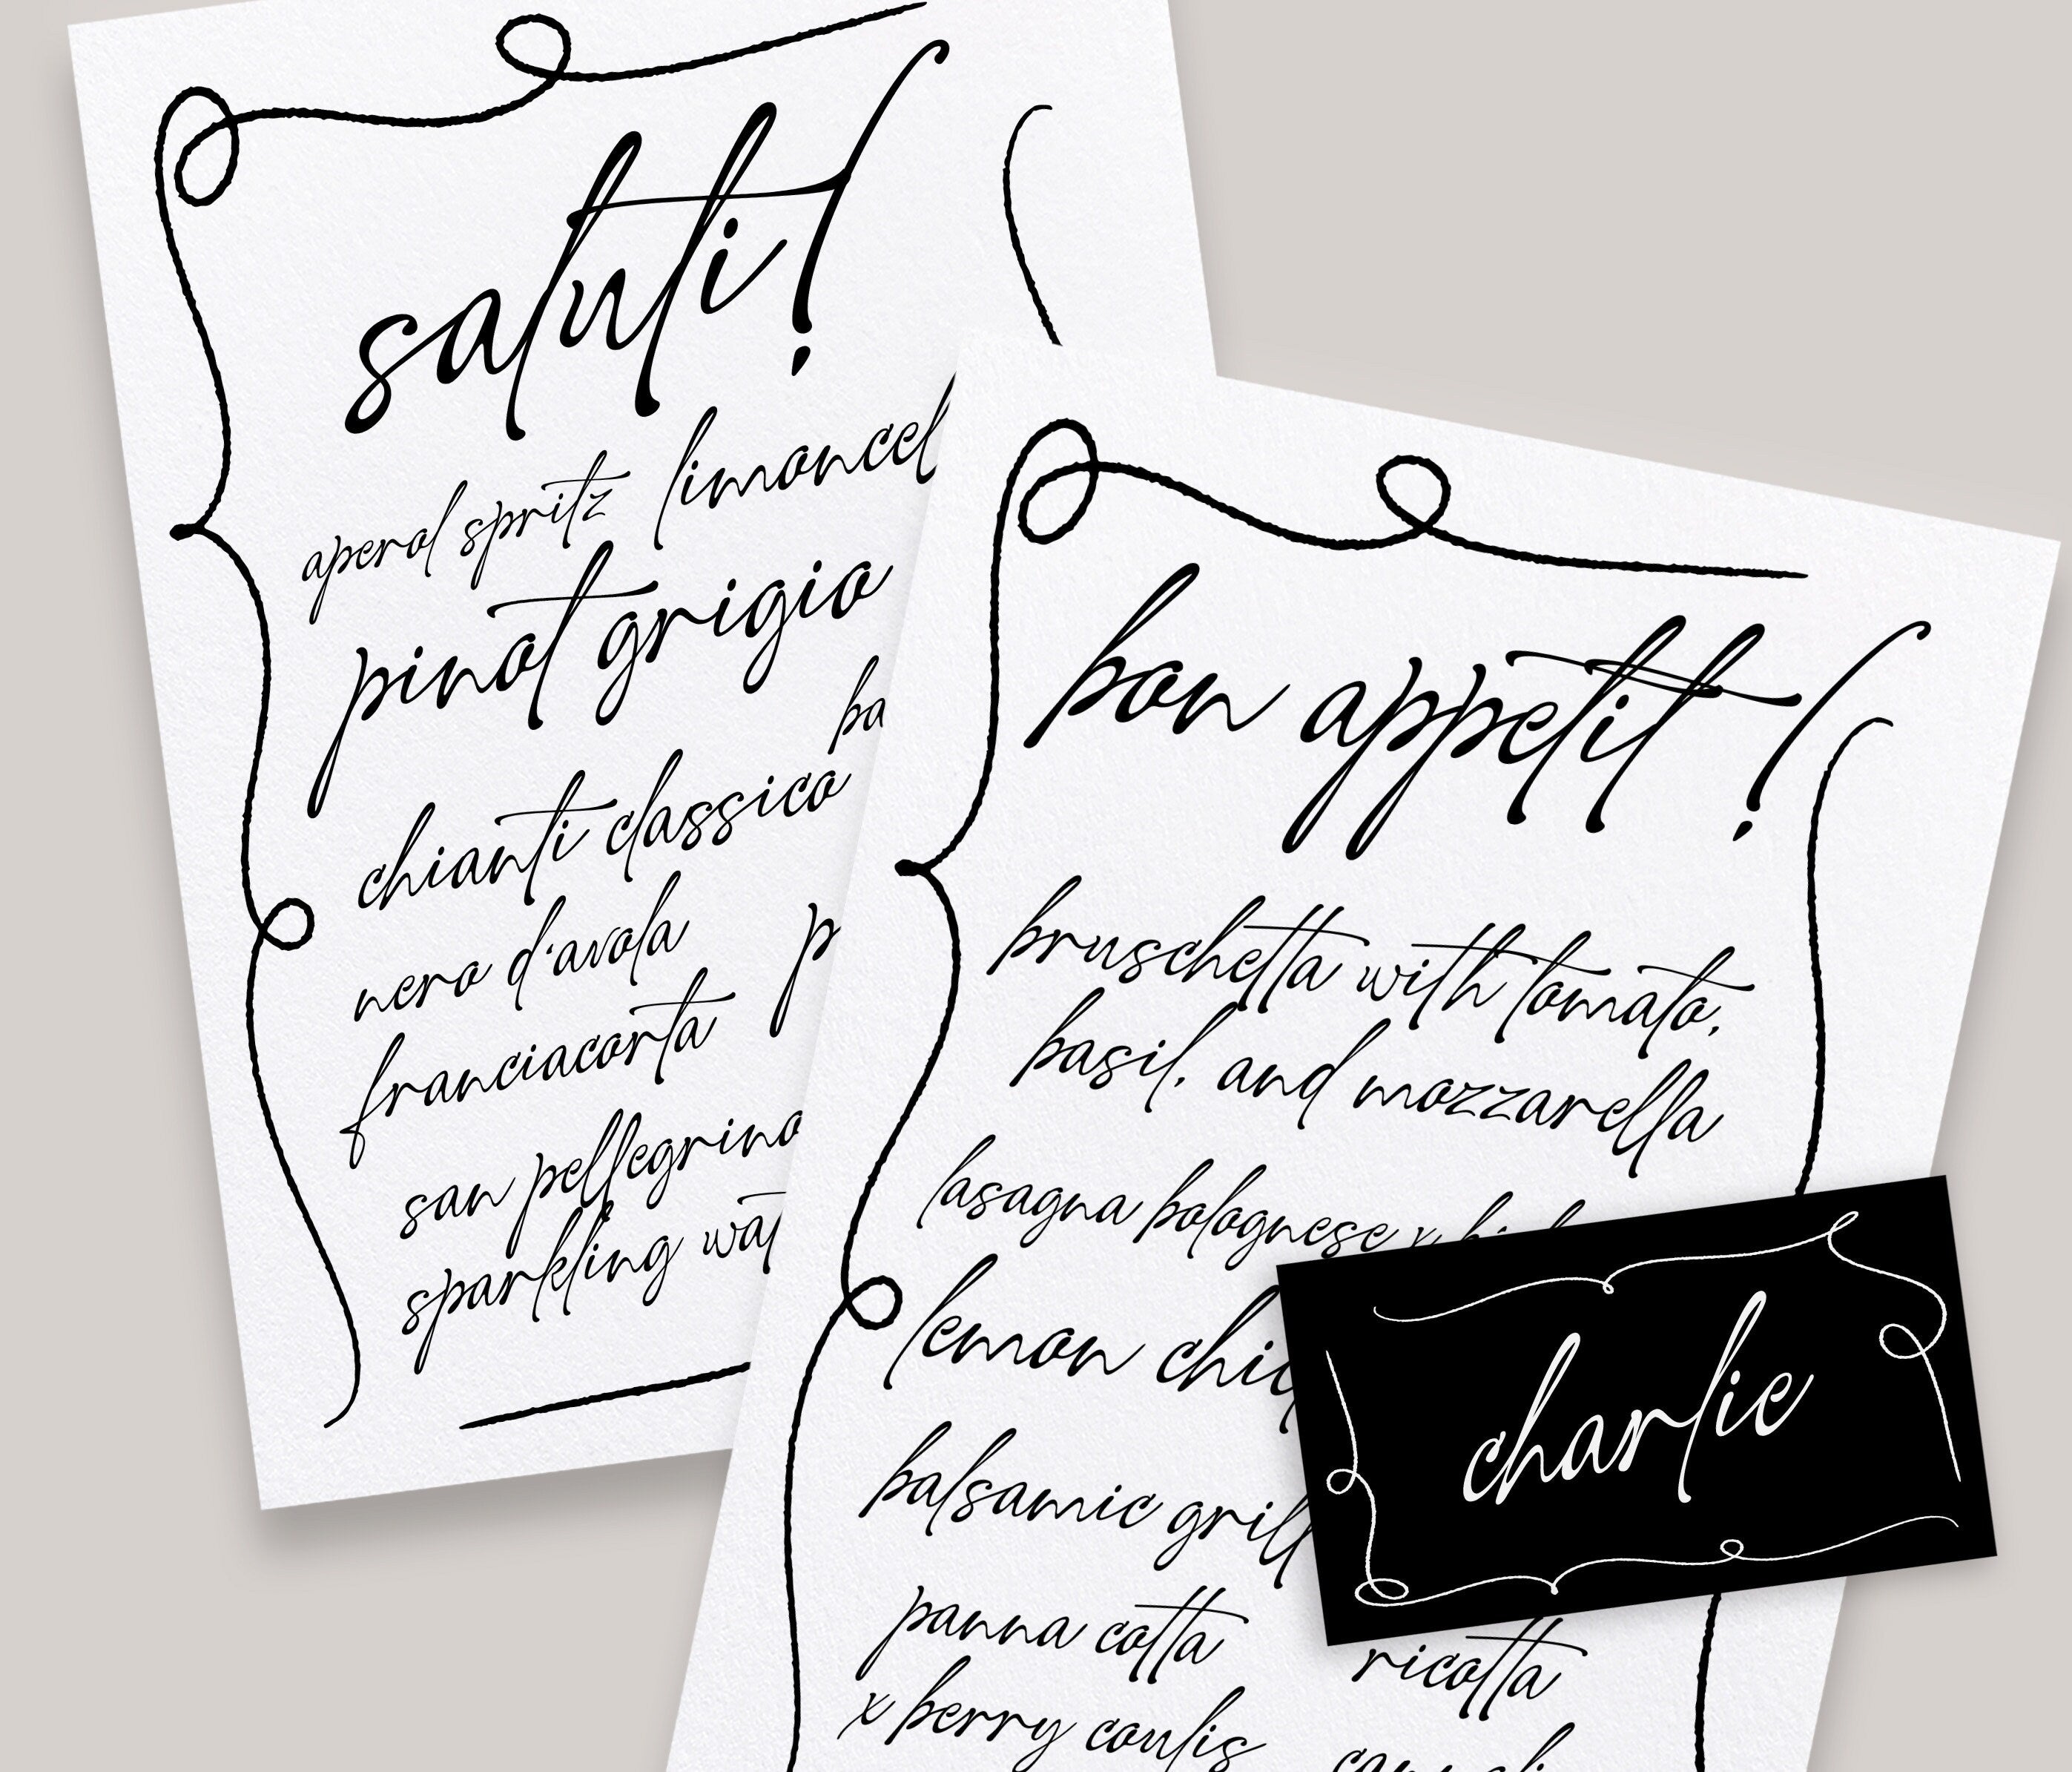 saluti!
aperol spritz limoncel
pinot grigio
ba
chianti classico
nero d'avola
p
franciacorta
san pellegrino
sparkling wat
bon appetit!
bruschetta with tomato,
basil, and mozzarella
lasagna bolognese x
lemon chic
balsamic grill
panna cotta
x berry coulis
ricotta
charlie